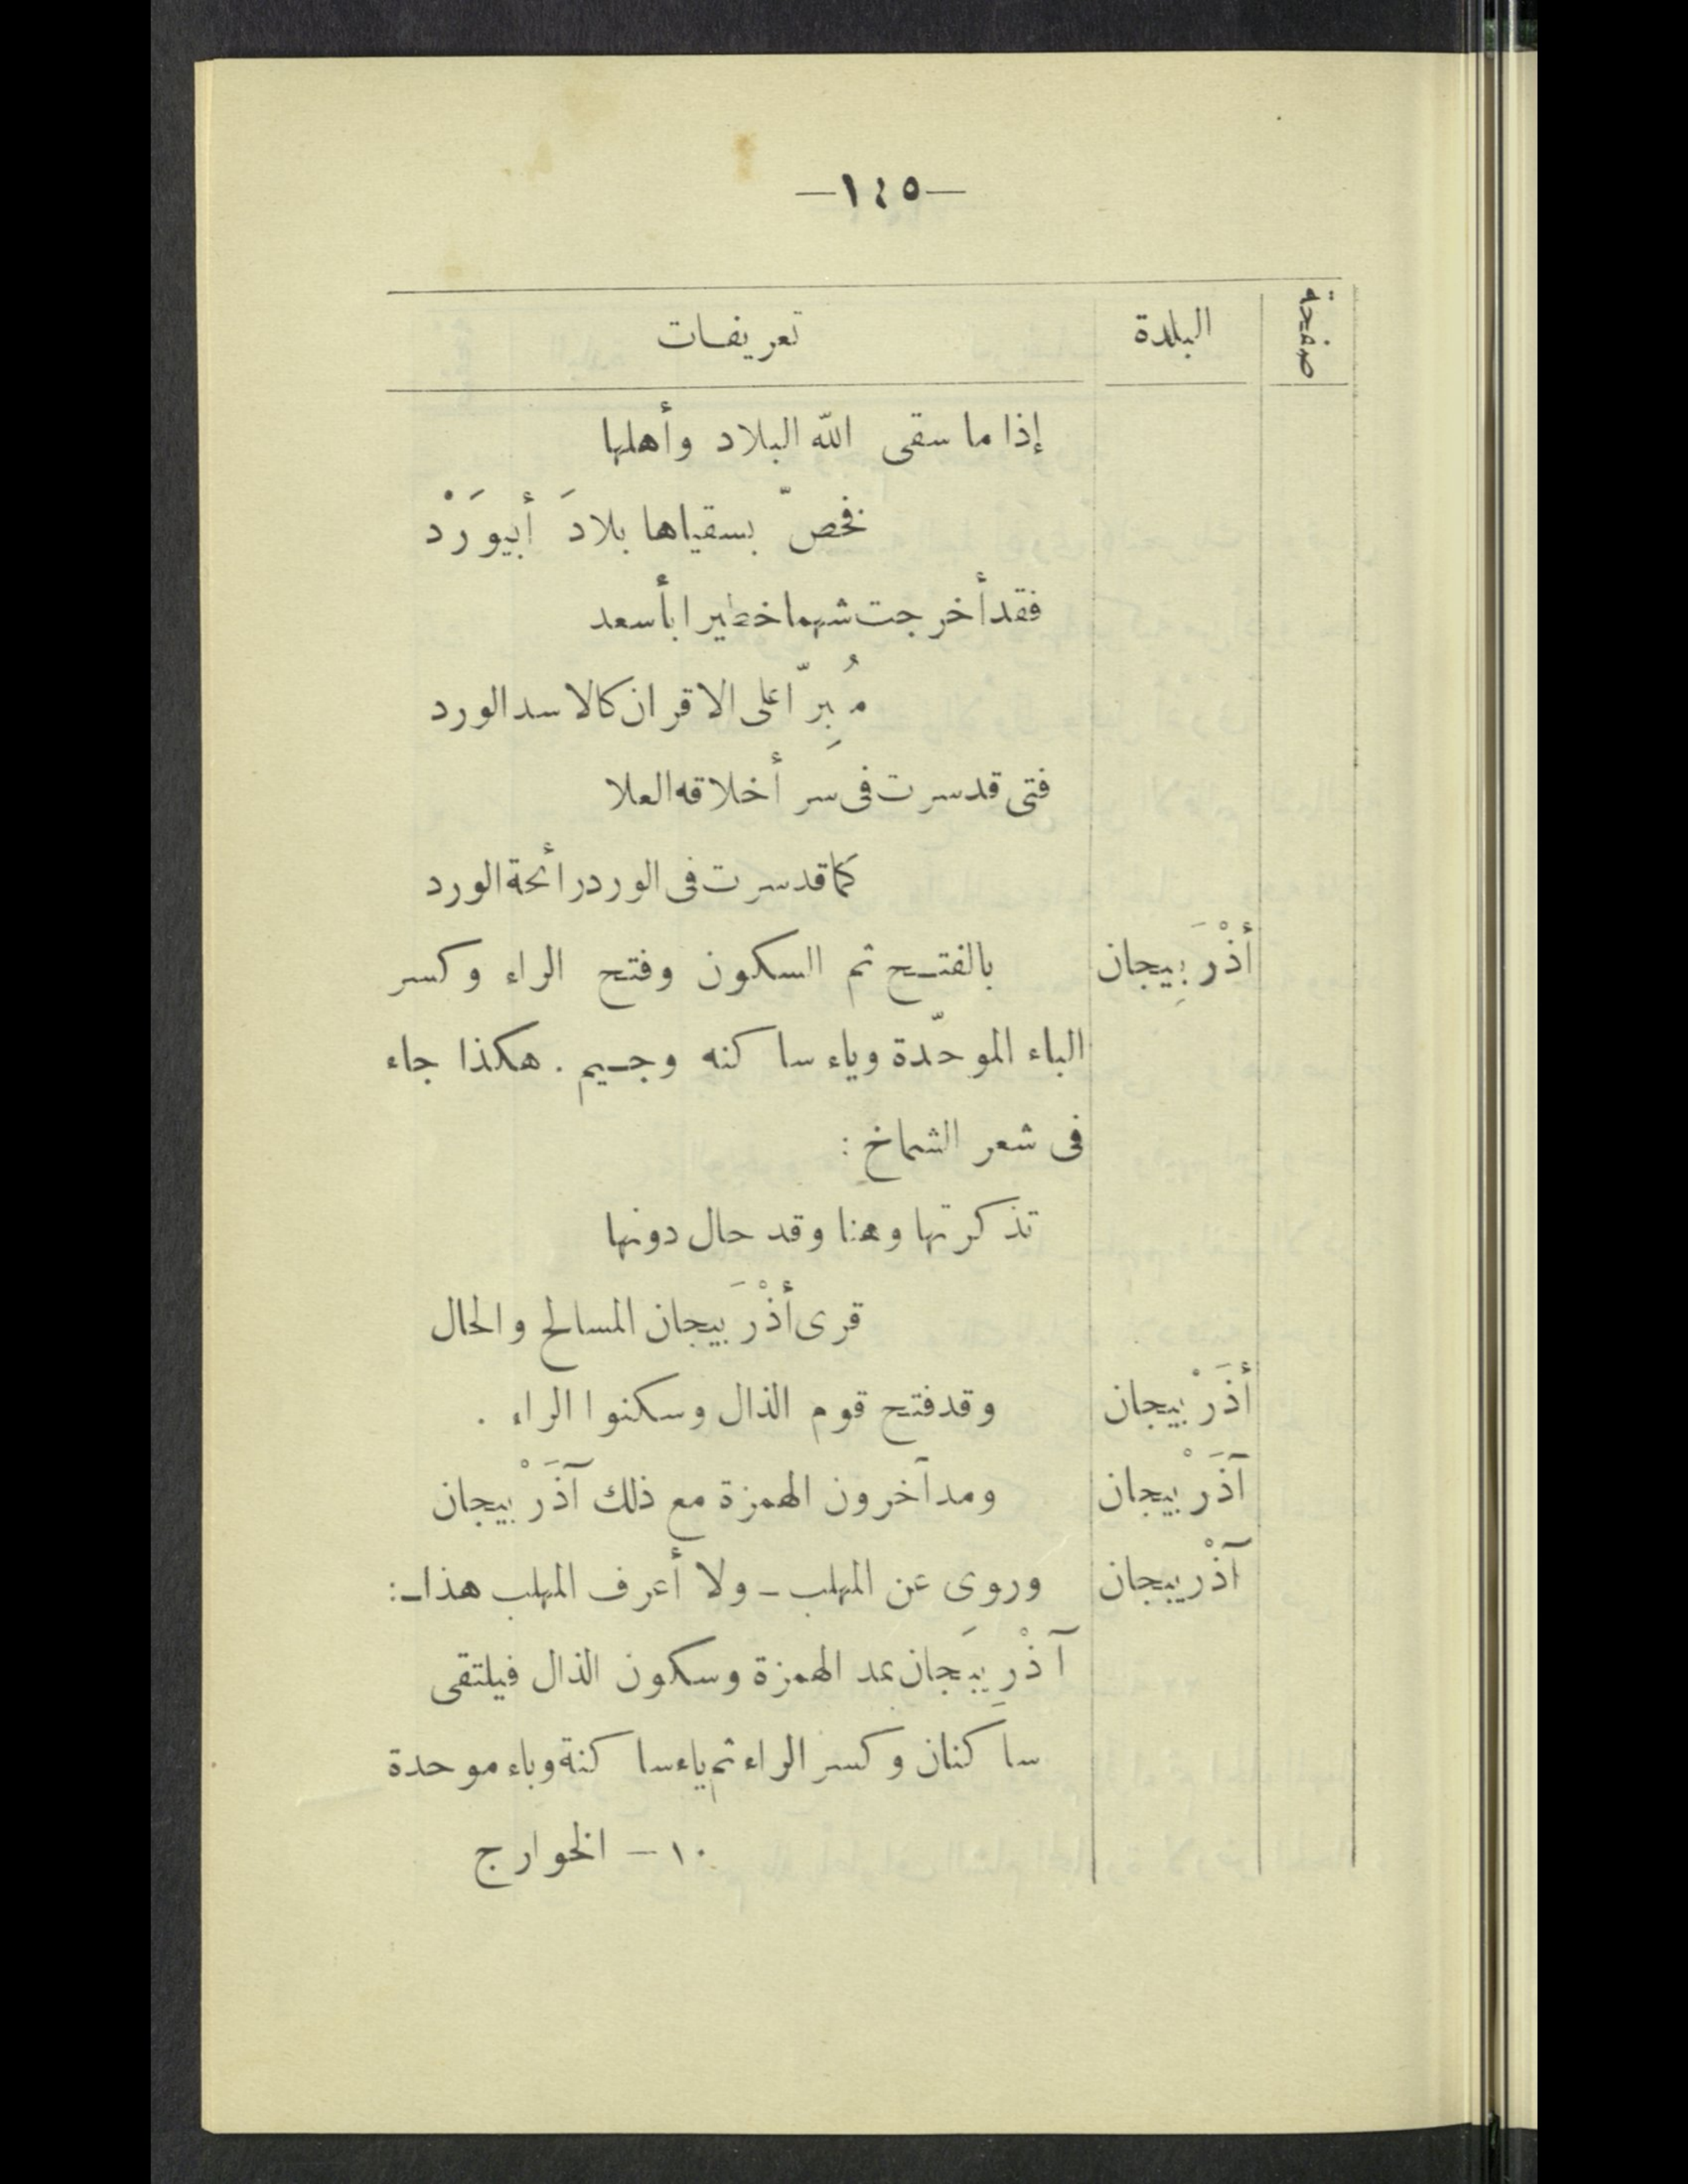 —١٤٥—
صفحة البلدة تعريفات
إذا ما سقى الله البلاد وأهلها
فخصّ بسقياها بلادَ أبيوَرْد
فقد أخرجت شهما خطيرا بأسعد
مُبِرّا على الاقران كالاسد الورد
فتى قد سرت فى سر أخلاقه العلا
كما قد سرت فى الورد رائحة الورد
أذْرَبِيجان بالفتح ثم السكون وفتح الراء وكسر
الباء الموحّدة وياء ساكنه وجيم . هكذا جاء
فى شعر الشماخ :
تذكرتها وهنا وقد حال دونها
قرى أذْرَبيجان المسالح والحال
أذَرْبيجان وقد فتح قوم الذال وسكنوا الراء .
آذَرْبيجان ومد آخرون الهمزة مع ذلك آذَرْبيجان
آذْريبجان وروى عن المهلب ـ ولا أعرف المهلب هذا ـ:
آذْرِيبَجان بمد الهمزة وسكون الذال فيلتقى
ساكنان وكسر الراء ثم ياء ساكنة وباء موحدة
١٠ – الخوارج